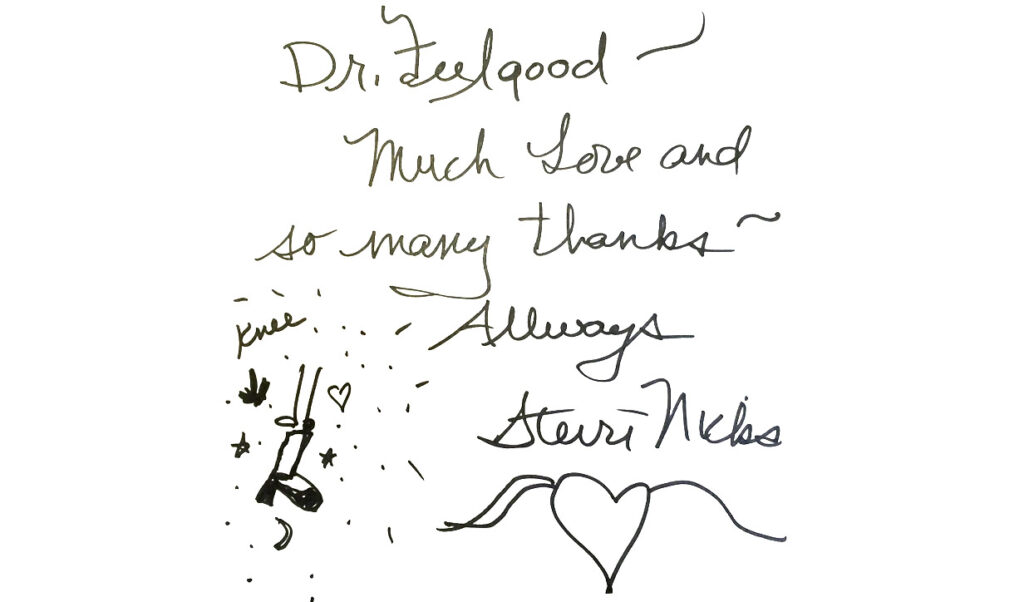 Dr. Feelgood ~
Much Love and
so many thanks ~
Allways
Knee
Stevie Nicks